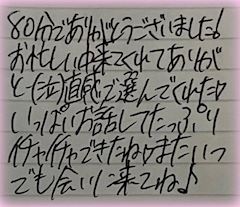 80分でありがとうございました!
お忙しい中来てくれてありが
と〜(泣)直感で選んでくれたね
いっぱいお話してたっぷり
イチャイチャできたねまたいつ
でも会いに来てね♪